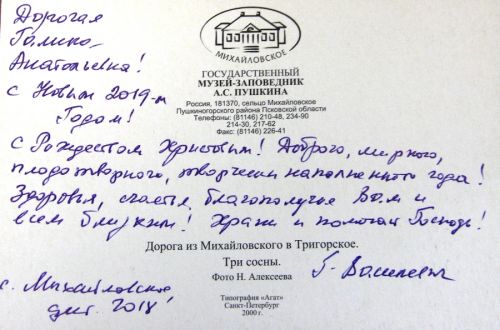 Дорогая
Галина
Анатольевна!
с Новым 2019-м
Годом!
МИХАЙЛОВСКОЕ
ГОСУДАРСТВЕННЫЙ
МУЗЕЙ-ЗАПОВЕДНИК
А.С. ПУШКИНА
Россия, 181370, сельцо Михайловское
Пушкиногорского района Псковской области
Телефоны: (81146) 210-48, 234-90
214-30, 217-62
Факс: (81146) 226-41
с Рождеством Христовым! Доброго, мирного,
плодотворного, творчески наполненного года!
Здоровья, счастья, благополучия Вам и
всем близким! Храни и помогай Господь!
Дорога из Михайловского в Тригорское.
Три сосны.
Фото Н. Алексеева
Г. Василевич
с. Михайловское
дек. 2018
Типография «Агат»
Санкт-Петербург
2000 г.